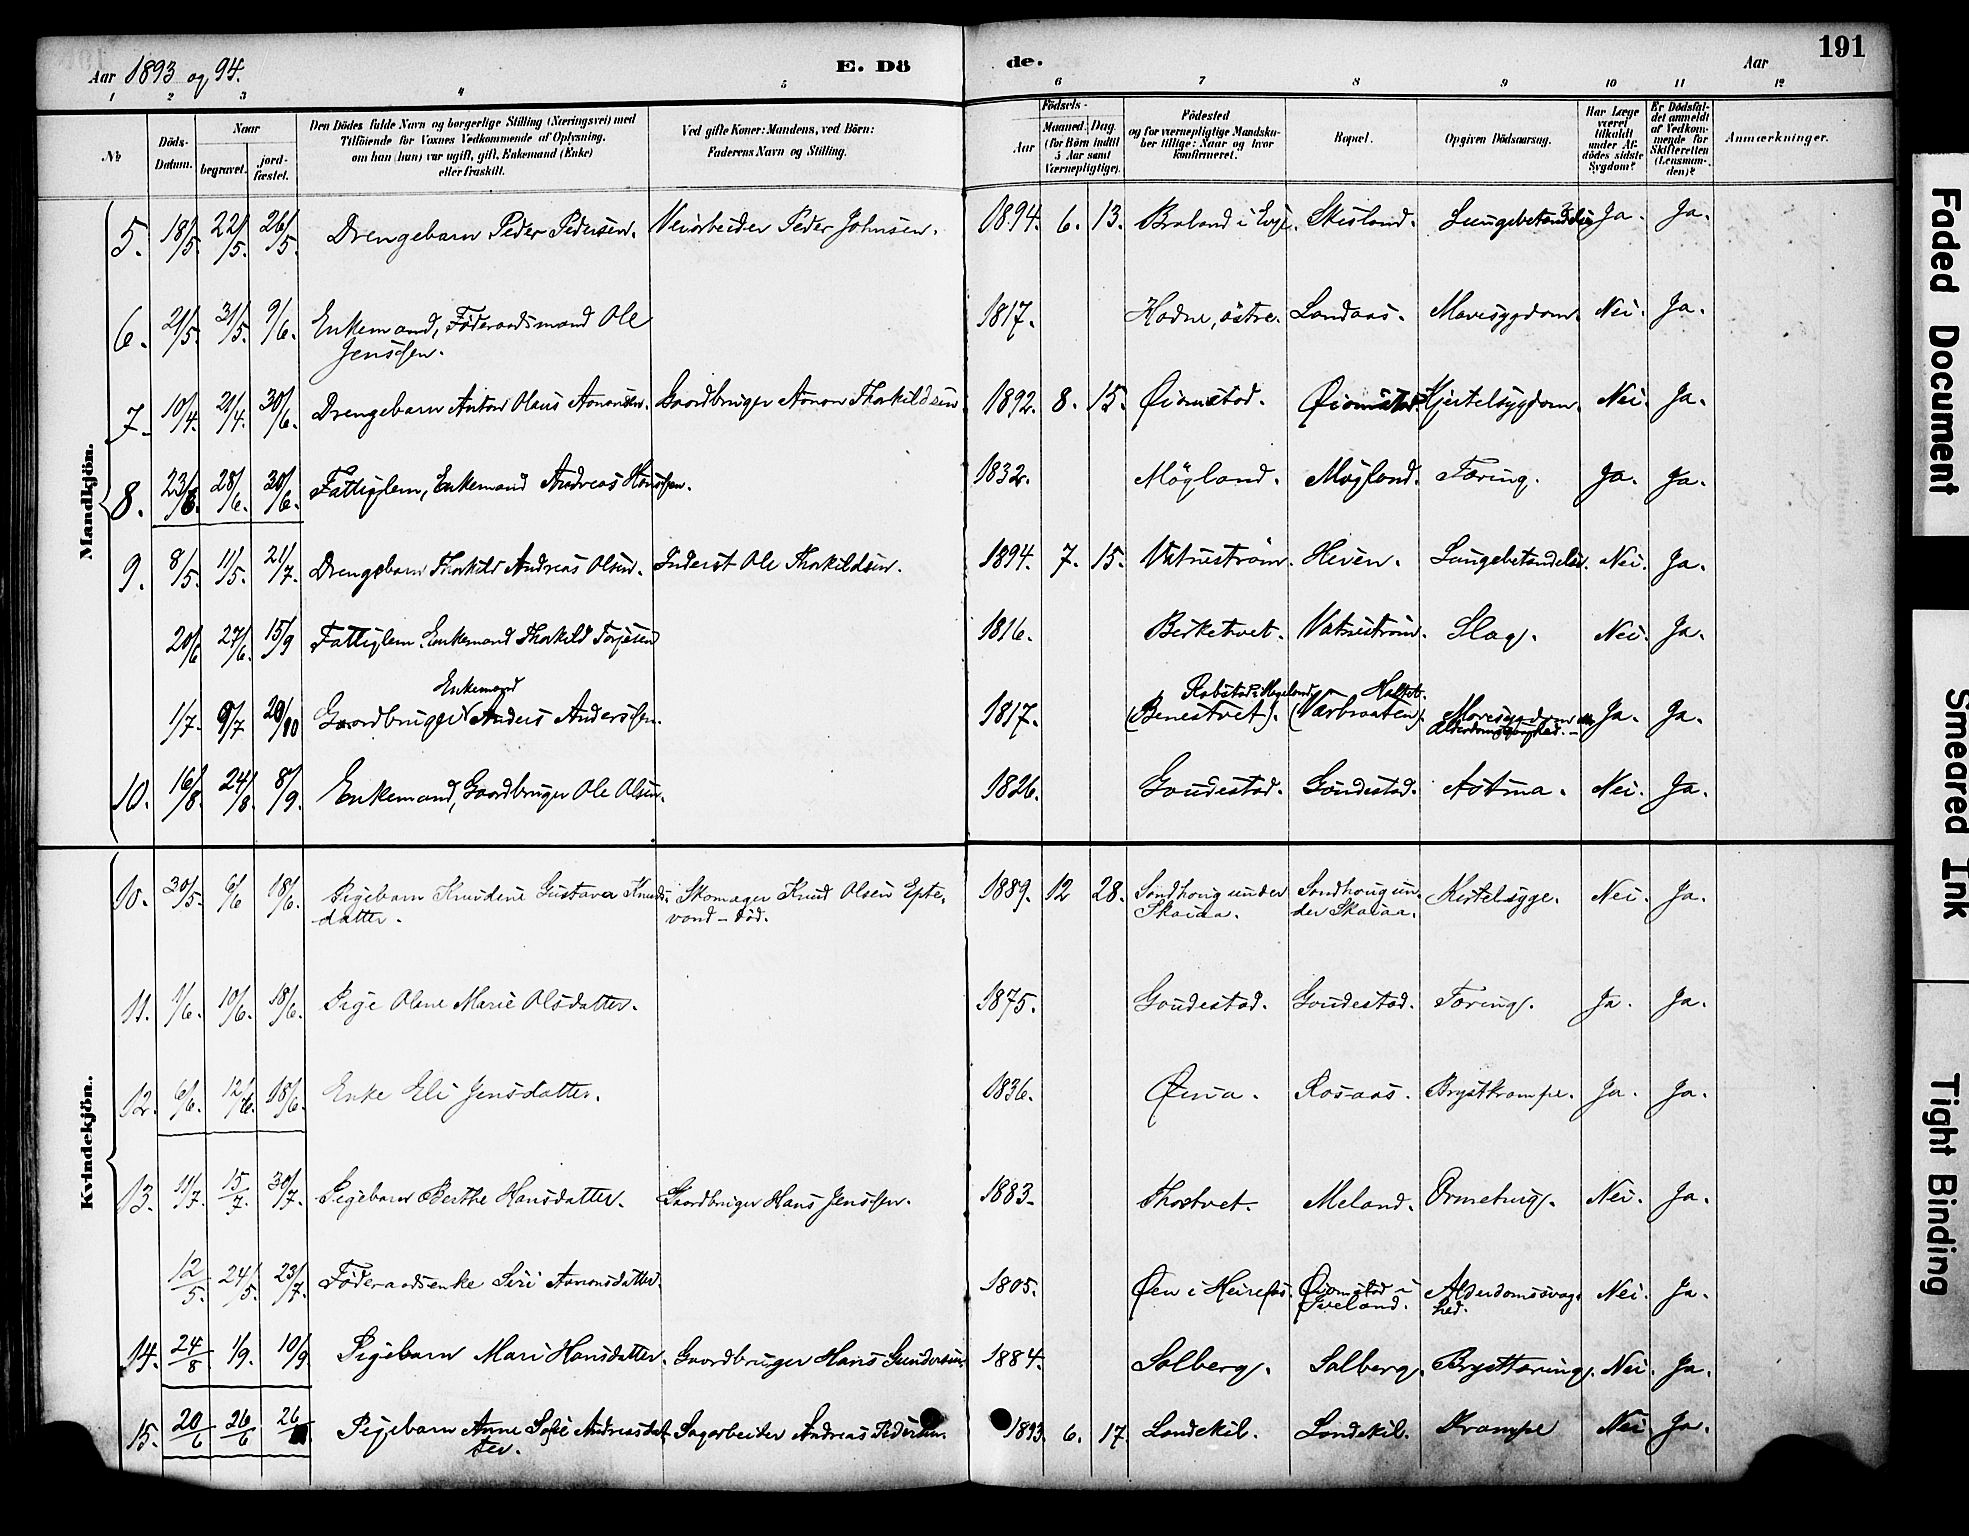 Aar 1893 og 94.
E. Dö
de.
Aar
191
1 2 3 4 5 6 7 8 9 10 11 12
№
Döds-Datum.
Naar
begravet.
jord-fæstet.
Den Dödes fulde Navn og borgerlige Stilling (Næringsvei) med
Tilföiende for Voxnes Vedkommende af Oplysning,
om han (hun) var ugift, gift, Enkemand (Enke)
eller fraskilt.
Ved gifte Koner: Mandens, ved Börn:
Faderens Navn og Stilling.
Födsels-
Aar
Maaned. Dag.
(for Börn indtil
5 Aar samt
Værnepligtige).
Födested
og for værnepligtige Mandska-
ber tillige: Naar og hvor
konfirmeret.
Bopæl.
Opgiven Dödsaarsag.
Har Læge
været
tilkaldt
under Af-
dödes sidste
Sygdom?
Er Dödsfal-
det anmeldt
af Vedkom-
mende for
Skifteretten
(Lensman-
den)?
Anmærkninger.
Mandkjön.
5. 18/5. 22/5. 26/5. Drengebarn Peder Pedersen. Veiarbeider Peder Johnsen. 1894. 6. 13. i Evje. Skisland. Lungebetændelse Ja. Ja.
6. 21/5. 31/5. 9/6. Enkemand, Føderaadsmand Ole
Jenssen.
1817. Hodne, östre. Landaas. Mavesygdom. Nei. Ja.
7. 10/4. 21/4. 30/6. Drengebarn Anton Olaus Aanonsen. Gaardbruger Aanon Thorkildsen 1892. 8. 15. Øiomstad. Øiomstad. Hjertesygdom. Nei. Ja.
8. 23/6. 28/6. 30/6. Fattiglem, Enkemand Andreas Hanssen. 1832. Mögland. Mögland. Tæring. Ja. Ja.
9. 8/5. 11/5. 21/7. Drengebarn Thorkild Andreas Olsen. Inderst Ole Thorkildsen. 1894. 7. 15. Vatneström. Heven. Lungebetændelse. Nei. Ja.
20/6 27/6. 15/9 Fattiglem. Enkemand Thorkild Terjesen 1816. Birketvet. Vatneström. Slag. Nei. Ja.
Enkemand
1/7. 9/7 20/10 Gaardbruger Anders Anderssen. 1817. (Benestvet). Ja. Ja.
10. 16/8. 24/8. 8/9. Enkemand, Gaardbruger Ole Olsen. 1826. Gaudestad. Gaudestad. Astma. Nei. Ja.
Kvindekjön.
10. 30/5. 6/6 18/6. Pigebarn Knudine Gustava Knuds-
datter.
Skomager Knud Olsen Epte-
vand - död.
1889. 12 28. Sandhoug under
Skaiaa.
Sandhoug un-
der Skaiaa.
Kirtelsyge. Nei. Ja.
11. 1/6. 10/6. 18/6. Pige Olene Marie Olsdatter. 1875. Gaudestad. Gaudestad. Tæring. Ja. Ja.
12. 6/6. 12/6. 18/6. Enke Eli Jensdatter. 1836. Rosaas. Brystkrampe. Ja. Ja.
13. 11/7. 15/7. 30/7. Pigebarn Berthe Hansdatter. Gaardbruger Hans Jenssen. 1883. Thortvet. Meland. Nei. Ja.
12/5. 24/5. 23/7. Føderaadsenke Siri Aanonsdatter. 1805. Øen i Heirefos. Øiomstad i
Iveland.
Alderdomssvag-
hed.
Nei. Ja.
14. 24/8 1/9. 10/9 Pigebarn Mari Hansdatter. Gaardbruger Hans Gundersen. 1884. Solberg. Solberg. Brysttæring. Nei. Ja.
15. 20/6 26/6 26/ Pigebarn Anne Sofie Andreasdat-
ter.
Sagarbeider Andreas Pedersen. 1893. 6. 17. Landekil. Landekil. Krampe Nei Ja.
Faded Document
Smeared Ink
Tight Binding